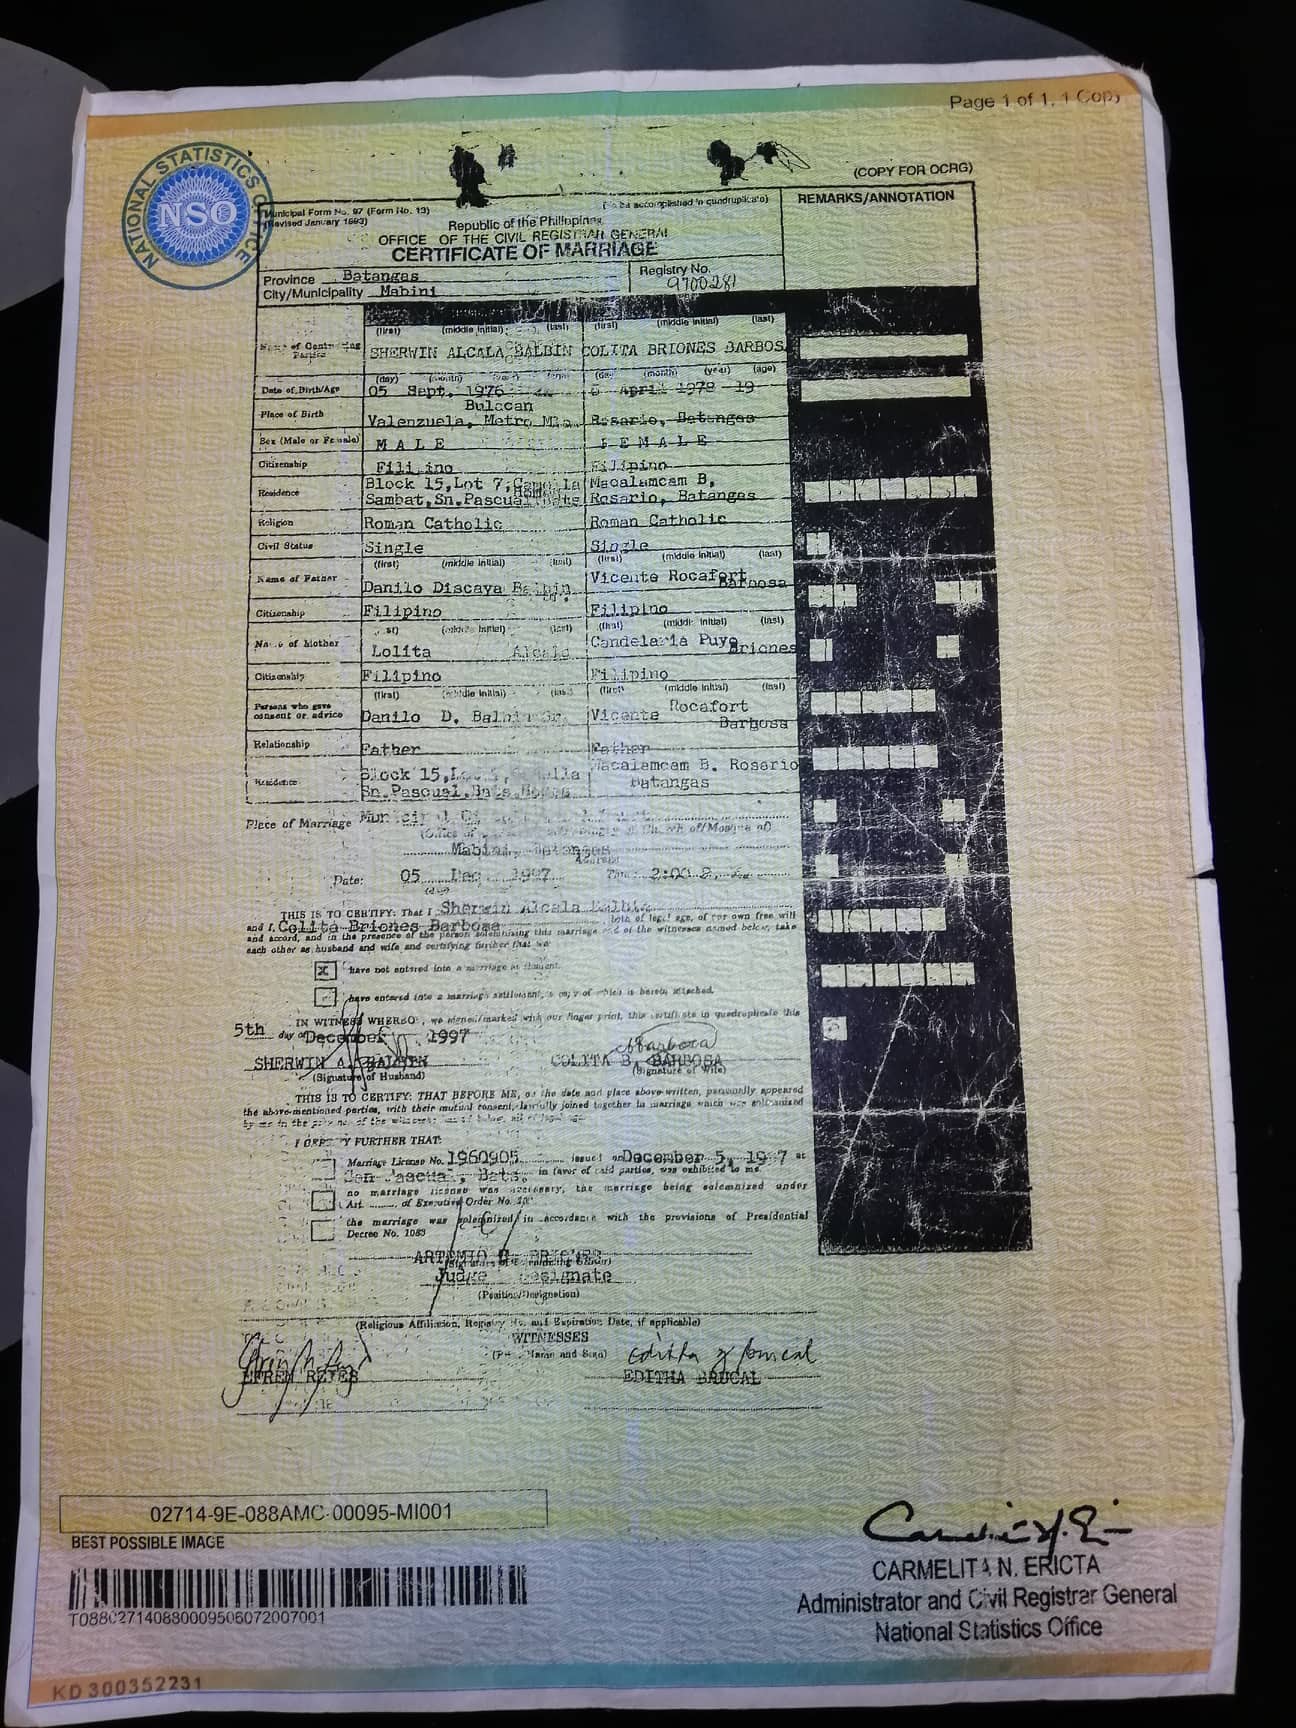 Page 1 of 1, 1 Copy
(COPY FOR OCRG)
NATIONAL STATISTICS OFFICE
NSO
Municipal Form No. 97 (Form No. 13)
(Revised January 1993)
(To be accomplished in quadruplicate)
REMARKS/ANNOTATION
Republic of the Philippines
OFFICE OF THE CIVIL REGISTRAR GENERAL
CERTIFICATE OF MARRIAGE
Province Batangas
City/Municipality Mabini
Registry No.
9700281
(first) (middle initial) (last) (first) (middle initial) (last)
Name of Contracting Parties SHERWIN ALCALA BALBIN COLITA BRIONES BARBOSA
(day) (month) (year) (age) (day) (month) (year) (age)
Date of Birth/Age 05 Sept. 1976 April 1978 19
Bulacan
Place of Birth Valenzuela, Metro Rosario, Batangas
Sex (Male or Female) MALE FEMALE
Citizenship Filipino Filipino
Residence Block 15, Lot 7, Macalamcam B,
Sambat, Sn. Pascual Rosario, Batangas
Religion Roman Catholic Roman Catholic
Civil Status Single Single
(first) (middle initial) (last) (first) (middle initial) (last)
Name of Father Danilo Discaya Balbin Vicente Rocafort Barbosa
Citizenship Filipino Filipino
(first) (middle initial) (last) (first) (middle initial) (last)
Name of Mother Lolita Alcala Candelaria Puyo Briones
Citizenship Filipino Filipino
(first) (middle initial) (last) (first) (middle initial) (last)
Persons who gave consent or advice Danilo D. Balbin Sr. Vicente Rocafort Barbosa
Relationship Father Father
Residence Block 15, Macalamcam B. Rosario
Sn. Pascual, Bats. Batangas
Place of Marriage
Mabini, Batangas
(Address)
Date: 05 Dec 1997 2:00
(day)
THIS IS TO CERTIFY: That I Sherwin Alcala Balbin
and I, Colita Briones Barbosa both of legal age, of our own free will
and accord, and in the presence of the person solemnizing this marriage and of the witnesses named below, take
each other as husband and wife and certifying further that we
x have not entered into a marriage settlement.
have entered into a marriage settlement, a copy of which is hereto attached.
IN WITNESS WHEREOF, we signed/marked with our finger print, this certificate in quadruplicate this
5th day of December 1997
SHERWIN A. BALBIN COLITA B. BARBOSA
(Signature of Husband) (Signature of Wife)
THIS IS TO CERTIFY: THAT BEFORE ME, on the date and place above-written, personally appeared
the above-mentioned parties, with their mutual consent, lawfully joined together in marriage which was solemnized
by me in the presence of the witnesses
I CERTIFY FURTHER THAT:
Marriage License No. 1960905 issued on December 5, 1997 at
San Pascual, Bats. in favor of said parties, was exhibited to me.
no marriage license was necessary, the marriage being solemnized under
Art. of Executive Order No.
the marriage was solemnized in accordance with the provisions of Presidential
Decree No. 1083
ARTEMIO BRIONES
Judge Designate
(Position/Designation)
(Religious Affiliation, Registry No. and Expiration Date, if applicable)
WITNESSES
(Print Name and Sign)
EFREN REYES EDITHA BRUCAL
02714-9E-088AMC-00095-MI001
BEST POSSIBLE IMAGE
T088027140880009506072007001
CARMELITA N. ERICTA
Administrator and Civil Registrar General
National Statistics Office
KD 300352231